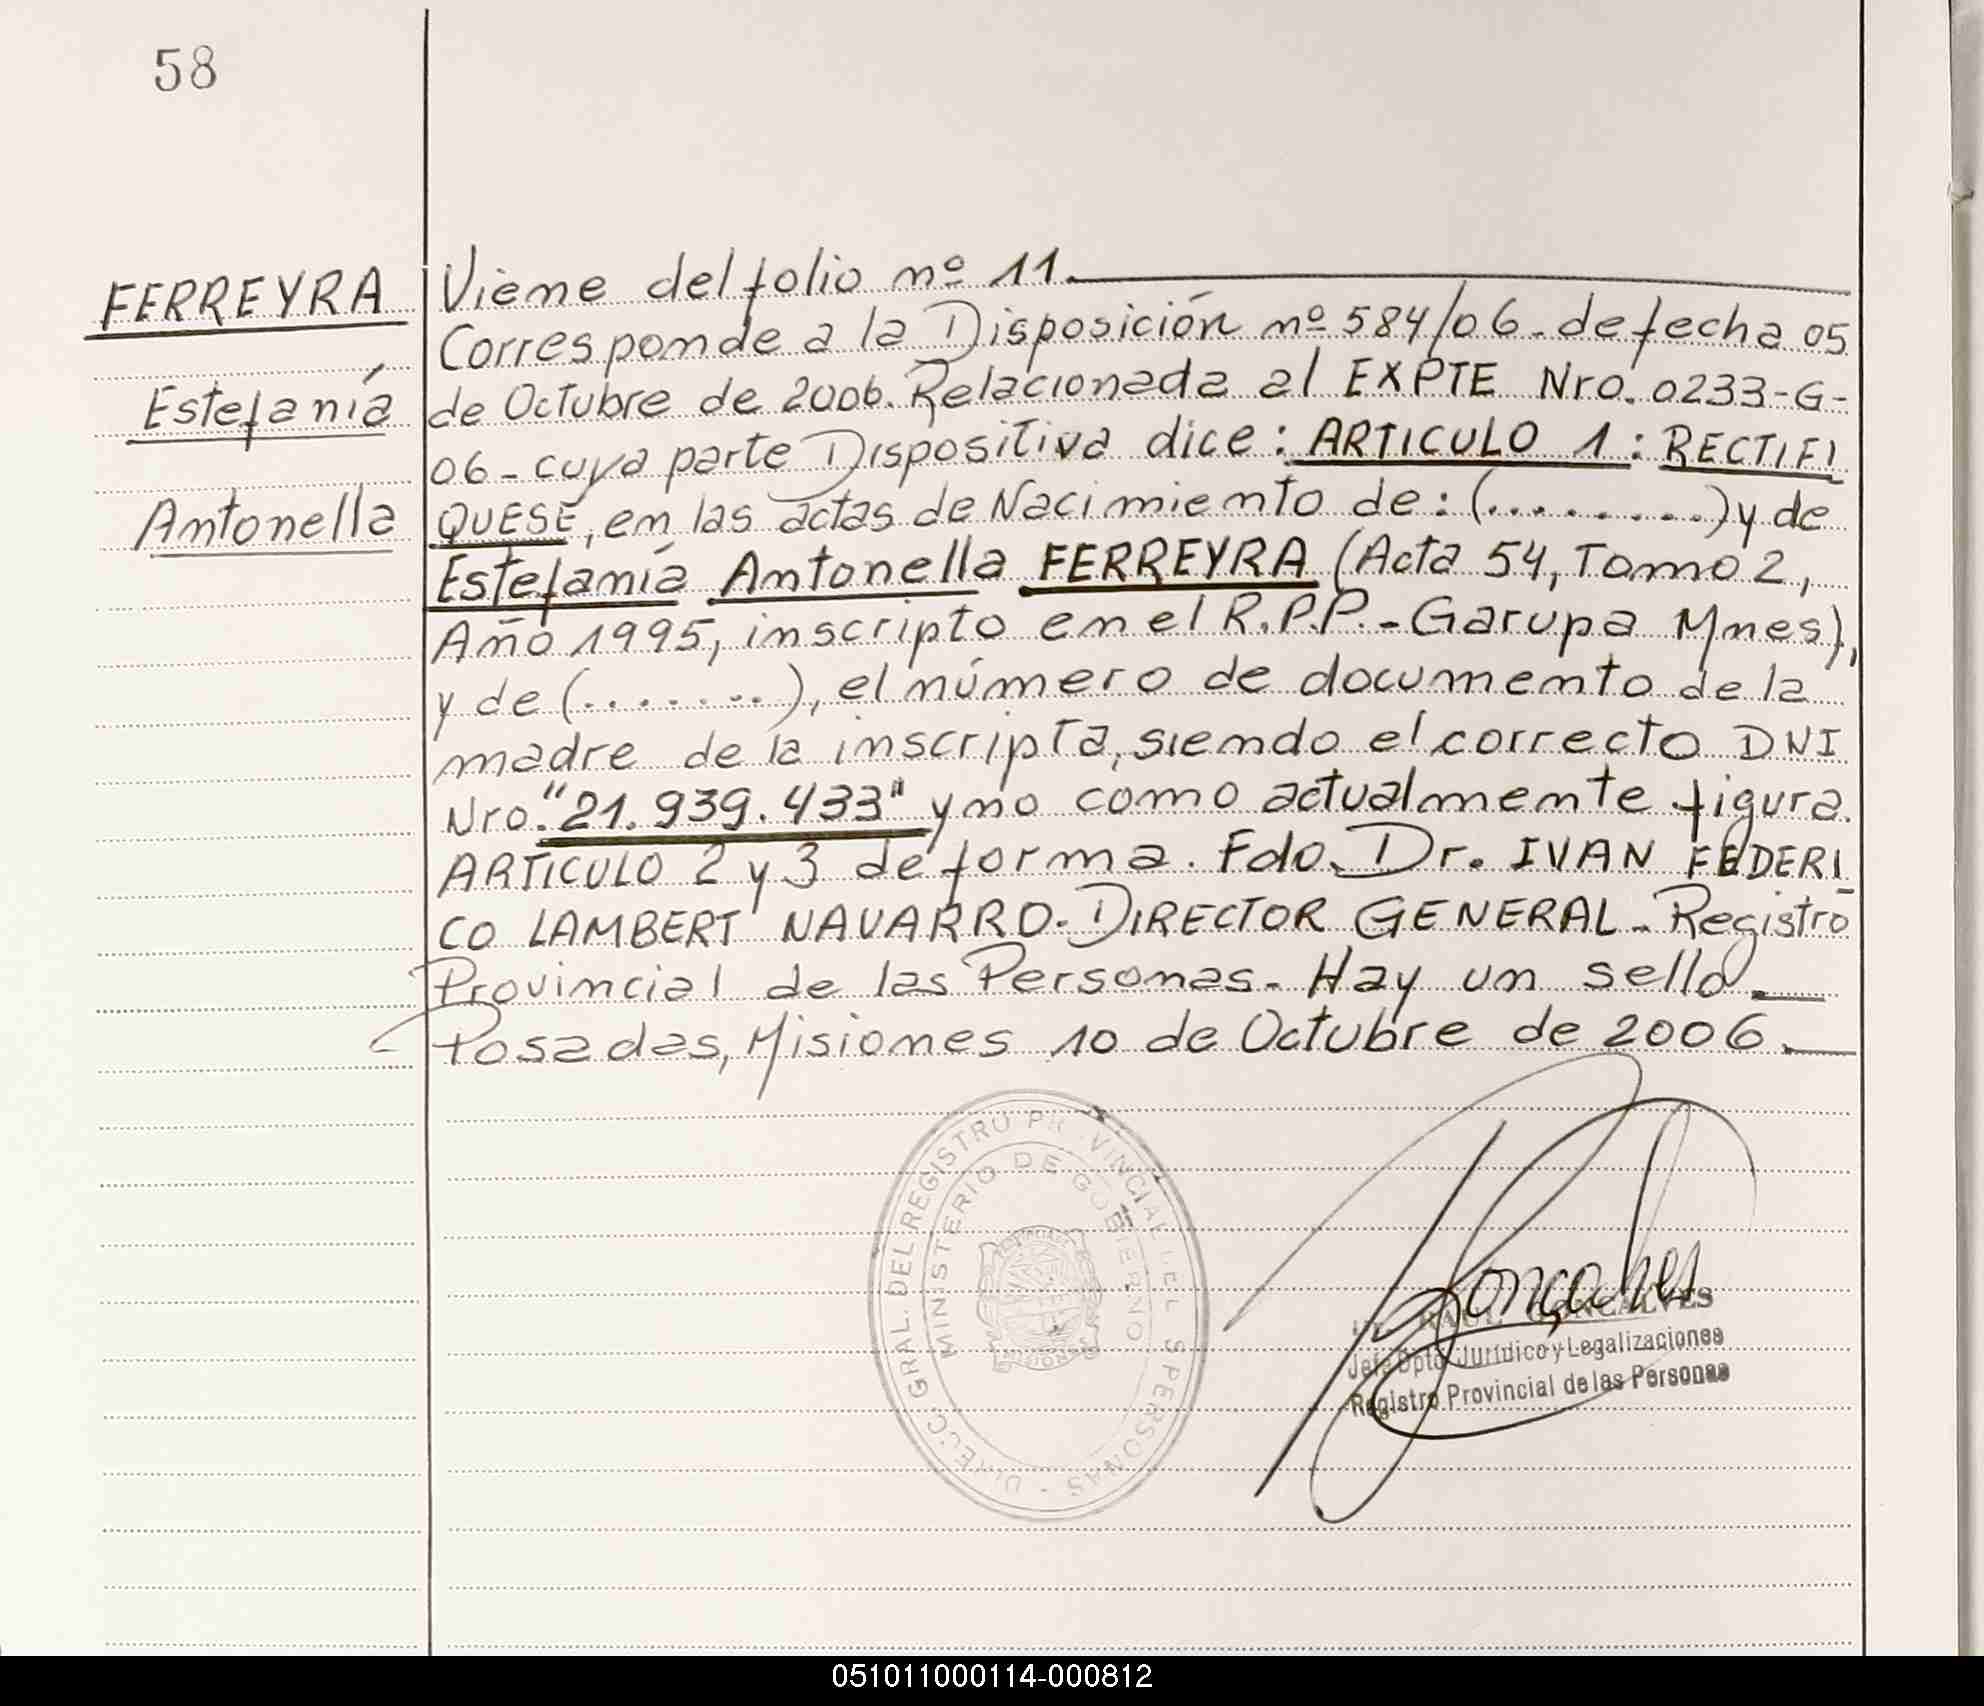 58
FERREYRA
Estefanía
Antonella
Viene del folio nº 11.
Corresponde a la Disposición nº 584/06. de fecha 05
de Octubre de 2006. Relacionada al EXPTE Nro. 0233-G-
06 - cuya parte Dispositiva dice: ARTICULO 1: RECTIFI
QUESE, en las actas de Nacimiento de: (.........) y de
Estefanía Antonella FERREYRA (Acta 54, Tomo 2,
Año 1995, inscripto en el R.P.P. - Garupa Mnes),
y de (.......), el número de documento de la
madre de la inscripta, siendo el correcto DNI
Nro. "21.939.433" y no como actualmente figura.
ARTICULO 2 y 3 de forma. Fdo. Dr. IVAN FEDERI_
CO LAMBERT NAVARRO. DIRECTOR GENERAL - Registro
Provincial de las Personas. Hay un sello.
Posadas, Misiones 10 de Octubre de 2006.
DIRECC. GRAL. DEL REGISTRO PROVINCIAL DE LAS PERSONAS
MINISTERIO DE GOBIERNO
Gonçalves
Dr. RAUL GONCALVES
Jefe Dpto. Jurídico y Legalizaciones
Registro Provincial de las Personas
051011000114-000812